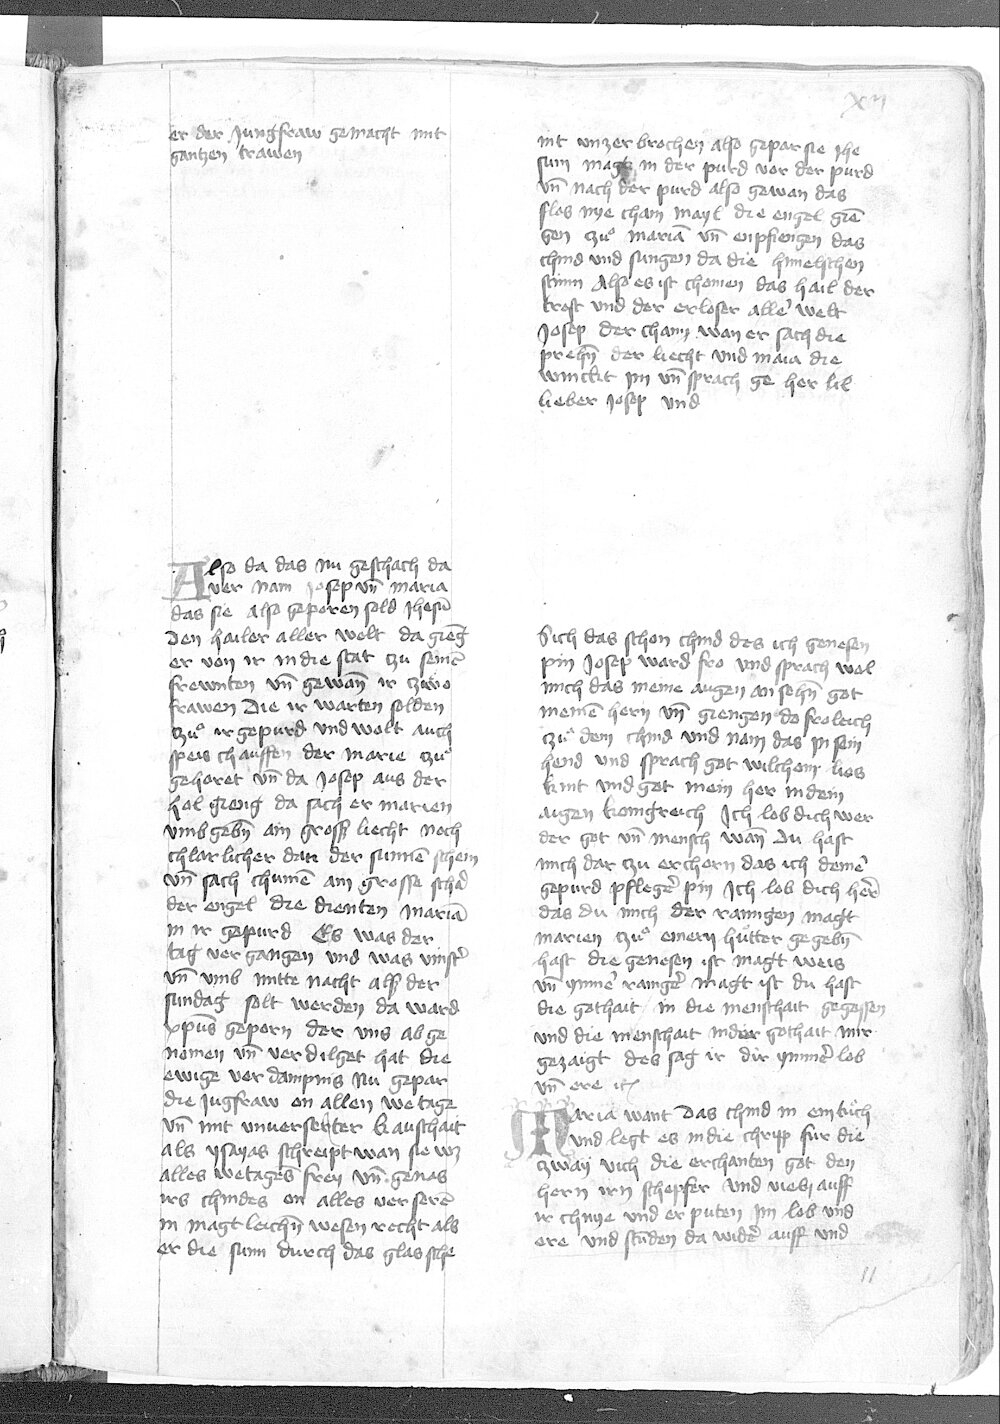 er der Jungfraw gemacht mit
gantzen trawen
Also da das nu geschach da
ver nam Josep vn̄ maria
das sie also geperen sold Jhesū
Den hailer aller welt da gieng
er von ir in die stat czu seinē
frewnten vn̄ gewan̄ ir zwo
frawen Die ir warten solden
czů ir gepurd vnd wolt auch
speis chauffen der marie czů
gehoret vn̄ da Josep aus der
hol gieng da sach er marien
vmb gebn̄ ain gross liecht noch
chlarlicher dan der sunnē schein
vn̄ sach chumē ain grosse schar
der engel die dienten mariā
in ir gepurd Es was der
tag vergangen vnd was vinster
vn̄ vmb mitte nacht als der
sundag solt werden da ward
xpūs geporn der vns ab ge
nomen vn̄ verdilget hat die
ewige verdampnis Nu gepar
die Jugfraw on allen wetage
vn̄ mit vnuerserter kauschait
als ysayas schreipt wan sie wz
alles wetagēs frey vn̄ genas
irs chindes on alles verserē
in magtleichn̄ wesen recht als
er die sunn durch das glas sche
xii
int vnzerbrochen also gepar sie ihe
sum magt in der purd vor der purd
vn̄ nach der purd also gewan das
flos nye cham mayl die engel gie
gen czů mariā vn̄ enpfiengen das
chind vnd sungen da die himelschen
stimn Also es ist chomen das hail der
trost vnd der erloser aller welt
Josep der cham wan er sach die
prehn̄ der liecht vnd maria die
winckt im vn̄ sprach ge her lib
lieber Josep vnd
Sich das schon chind des ich genesen
pin Josep ward fro vnd sprach wol
mich das meine augen an sehn̄ got
meinē hern vn̄ giengen do froleich
czů dem chind vnd nam das in sein
hend vnd sprach got wilchom libs
kint vnd got mein her in dein
augen konigreich Ich lob dich wer
der got vn̄ mensch wan̄ Du hast
mich dar czu erchorn das ich deinē
gepurd pfleger pin Ich lob dich herre
das du mich der rainigen magt
marien czů einem hütter gegebn̄
hast die genesen ist magt weis
vn̄ ymmer rainger magt ist du hast
die gothait in die menschait gegossen
vnd die menschait in der gothait mir
gezaigt des sag ir dir ymmer lob
vn̄ ere
Maria want Das chind in ein tůch
vnd legt es in die chripp fur die
zway vich die erchanten got den
hern irn schepfer vnd vieln auff
ir chnye vnd erputen im lob vnd
ere vnd stůnden da wider auff vnd
11